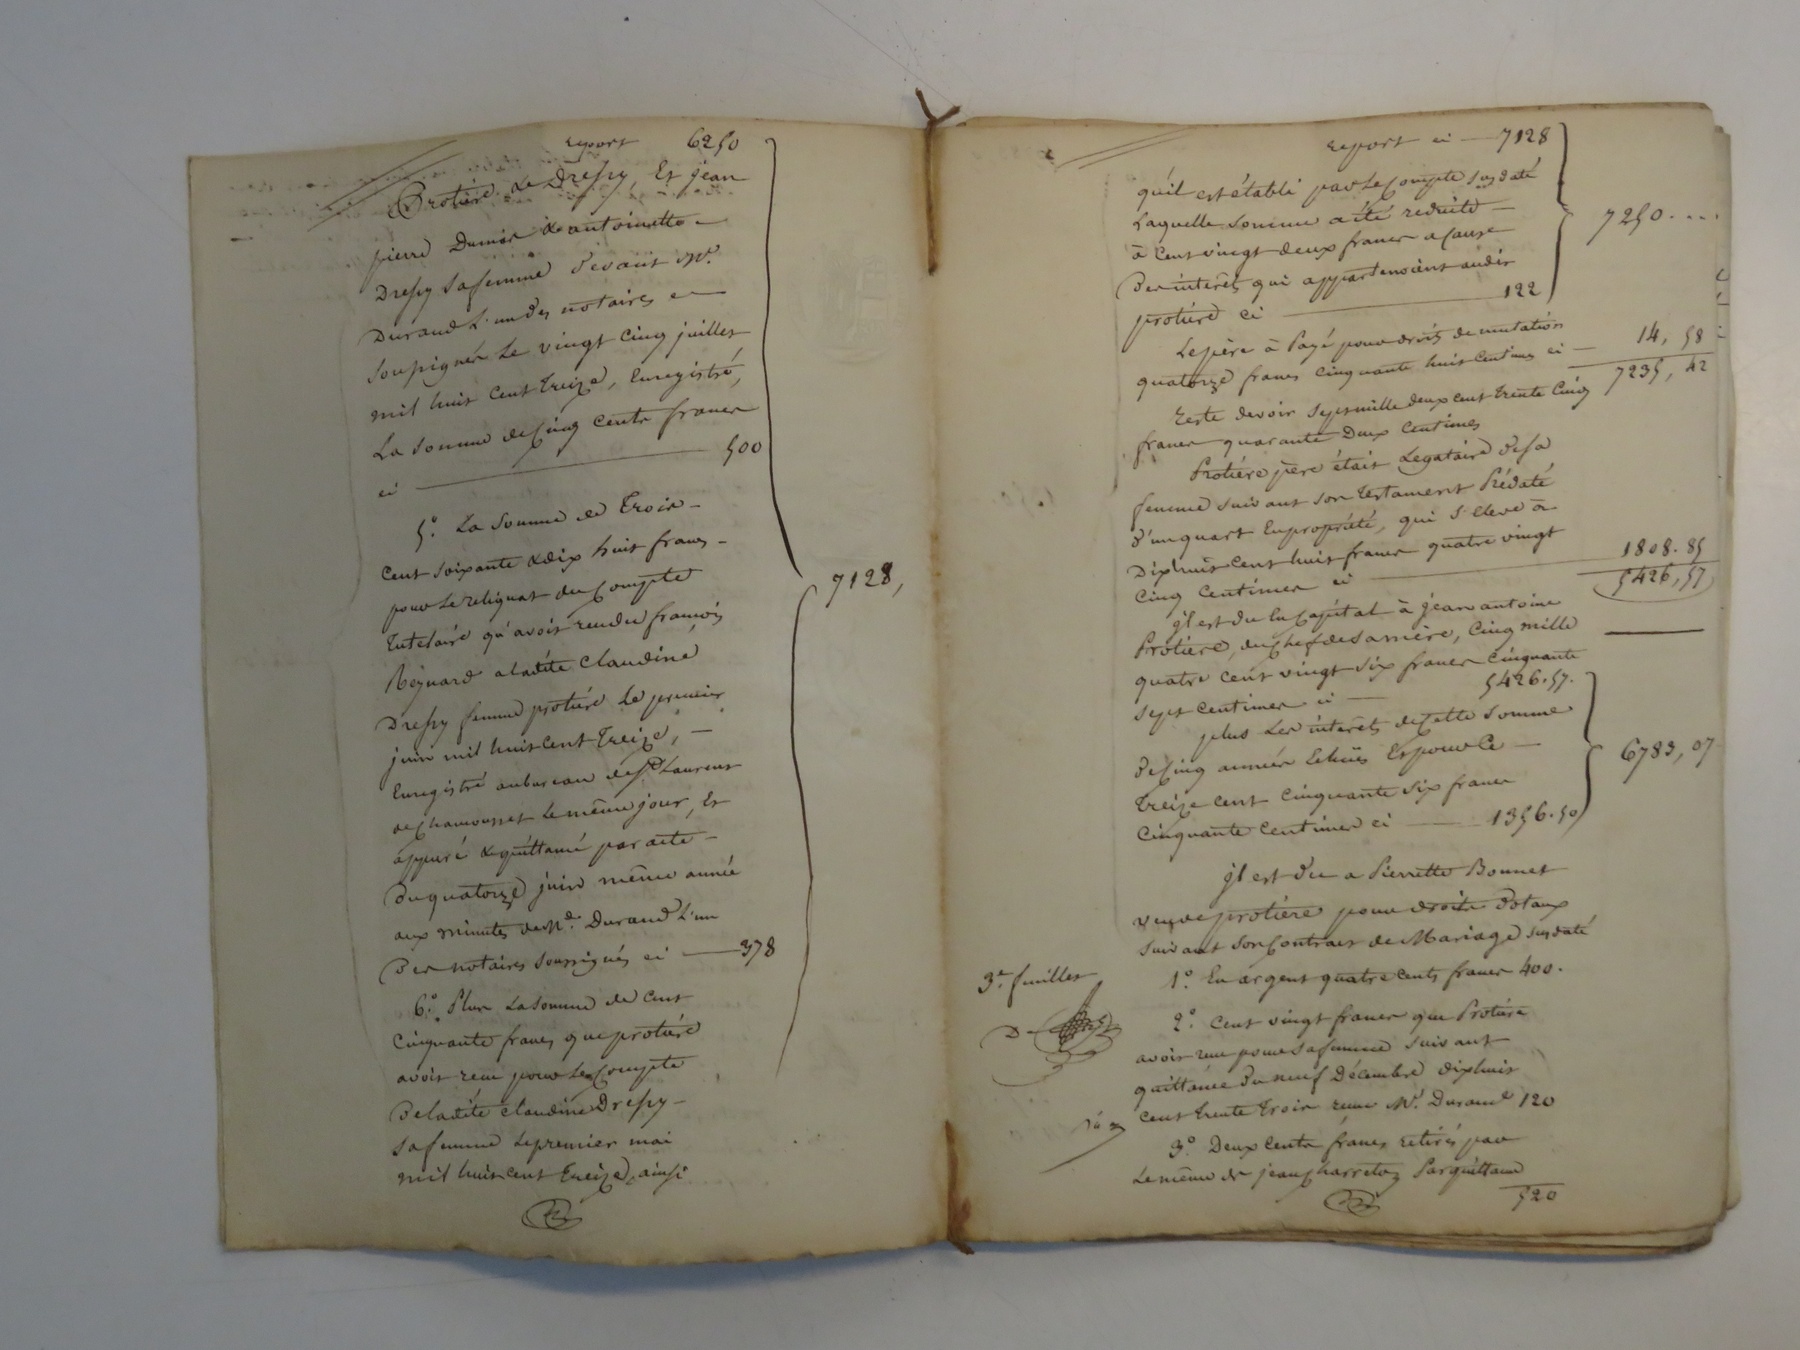 report 6250
Protière Le Dressy, Et jean
pierre Dumas & antoinette
Dressy sa femme devant Me.
Durand L'un des notaires
soussignés Le vingt cinq juillet
mil huit cent treize, Enregistré,
La somme de Cinq cents francs
ci 500
5.° La somme de Trois
cent soixante & dix huit francs
pour Le reliquat du Compte
Tutelaire qu'avoit rendu françois
Reynard a ladite Claudine
Dressy femme protière Le premier
juin mil huit Cent Treize,
Enregistré au bureau de St. Laurent
de Chamousset Le même jour, Et
appuré & quittancé par acte
du quatorze juin même année
aux minutes de Me. Durand L'un
Des notaires soussignés ci 378
7128,
6.° Plus La somme de Cent
Cinquante francs que protière
avoit reçu pour Le Compte
De ladite Claudine Dressy
sa femme Le premier mai
mil huit cent treize, ainsi
report ci 7128
qu'il est établi par Le Compte susdaté
Laquelle somme a été reduite
à Cent vingt deux francs a Cause
Des interêts qui appartenoient audit
protière ci 122
7250
Le père à Payé pour droits de mutation
quatorze francs cinquante huit Centimes ci 14, 58
7235, 42
reste devoir sept mille deux cent trente Cinq
francs quarante Deux Centimes
Protière père était Legataire de sa
femme suivant son Testament Prédaté
d'un quart En propriété, qui s'éleve à
Dix huit Cent huit francs quatre vingt
Cinq Centimes ci 1808.85
5426,57
il est du En Capital à jean antoine
Protière, du Chef de sa mère, Cinq mille
quatre Cent vingt six francs Cinquante
sept Centimes ci 5426.57.
plus Les interêts de Cette somme
de Cinq années Echues Et pour Ce
Treize cent Cinquante six francs
Cinquante Centimes ci 1356.50
6783,07
il est Du a Pierrette Bonnet
veuve protière pour droits Dotaux
suivant son Contrat de Mariage susdaté
3e. feuillet
1.° En argent quatre Cents francs 400.
2.° Cent vingt francs que Protière
avoit reçu pour sa femme suivant
quittance Du neuf Décembre dix huit
Cent trente Trois reçue Me. Durand 120
3.° Deux Cents francs retirés par
Le même de jean Charretoz Par quittance
520